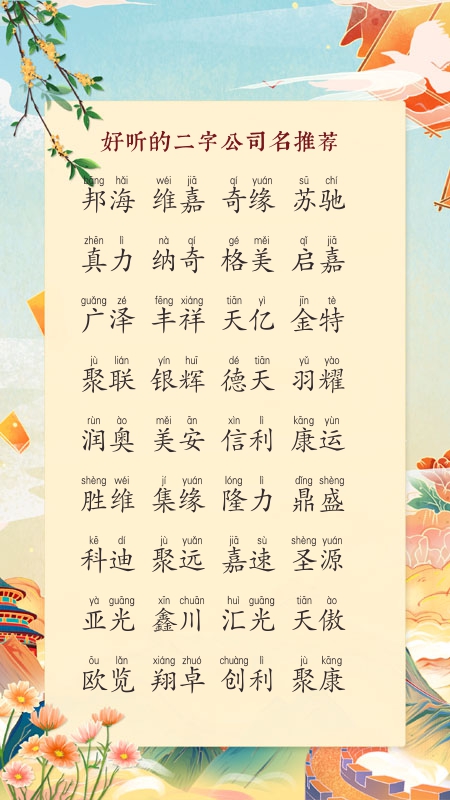 好听的二字公司名推荐
bāng hǎi wéi jiā qí yuán sū chí
邦海 维嘉 奇缘 苏驰
zhēn lì nà qí gé měi qǐ jiā
真力 纳奇 格美 启嘉
guǎng zé fēng xiáng tiān yì jīn tè
广泽 丰祥 天亿 金特
jù lián yín huī dé tiān yǔ yào
聚联 银辉 德天 羽耀
rùn ào měi ān xìn lì kāng yùn
润奥 美安 信利 康运
shèng wéi jí yuán lóng lì dǐng shèng
胜维 集缘 隆力 鼎盛
kē dí jù yuǎn jiā sù shèng yuán
科迪 聚远 嘉速 圣源
yà guāng xīn chuān huì guāng tiān ào
亚光 鑫川 汇光 天傲
ōu lǎn xiáng zhuó chuàng lì jù kāng
欧览 翔卓 创利 聚康